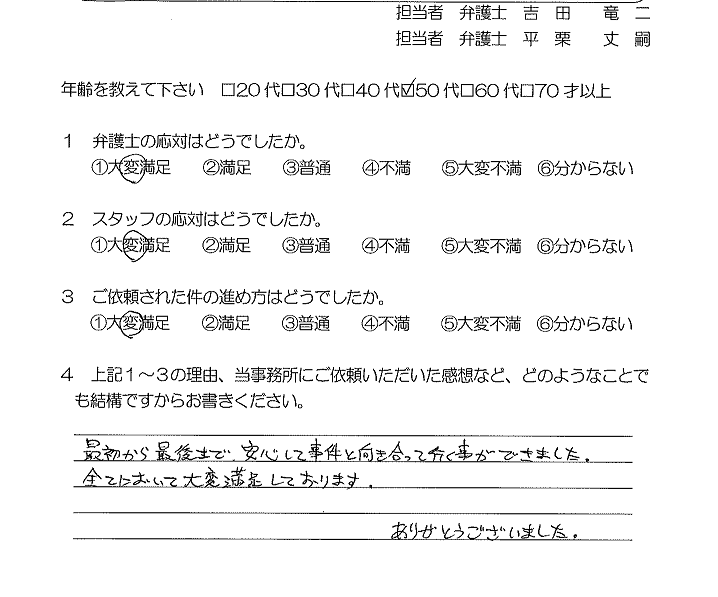 担当者　弁護士　吉　田　　竜　二
担当者　弁護士　平　栗　　丈　嗣
年齢を教えて下さい　□20代□30代□40代☑50代□60代□70才以上
１　弁護士の応対はどうでしたか。
①大変満足　②満足　③普通　④不満　⑤大変不満　⑥分からない
２　スタッフの応対はどうでしたか。
①大変満足　②満足　③普通　④不満　⑤大変不満　⑥分からない
３　ご依頼された件の進め方はどうでしたか。
①大変満足　②満足　③普通　④不満　⑤大変不満　⑥分からない
４　上記１～３の理由、当事務所にご依頼いただいた感想など、どのようなことで
も結構ですからお書きください。
最初から最後まで、安心して事件と向き合って行く事ができました。
全てにおいて大変満足しております。
ありがとうございました。